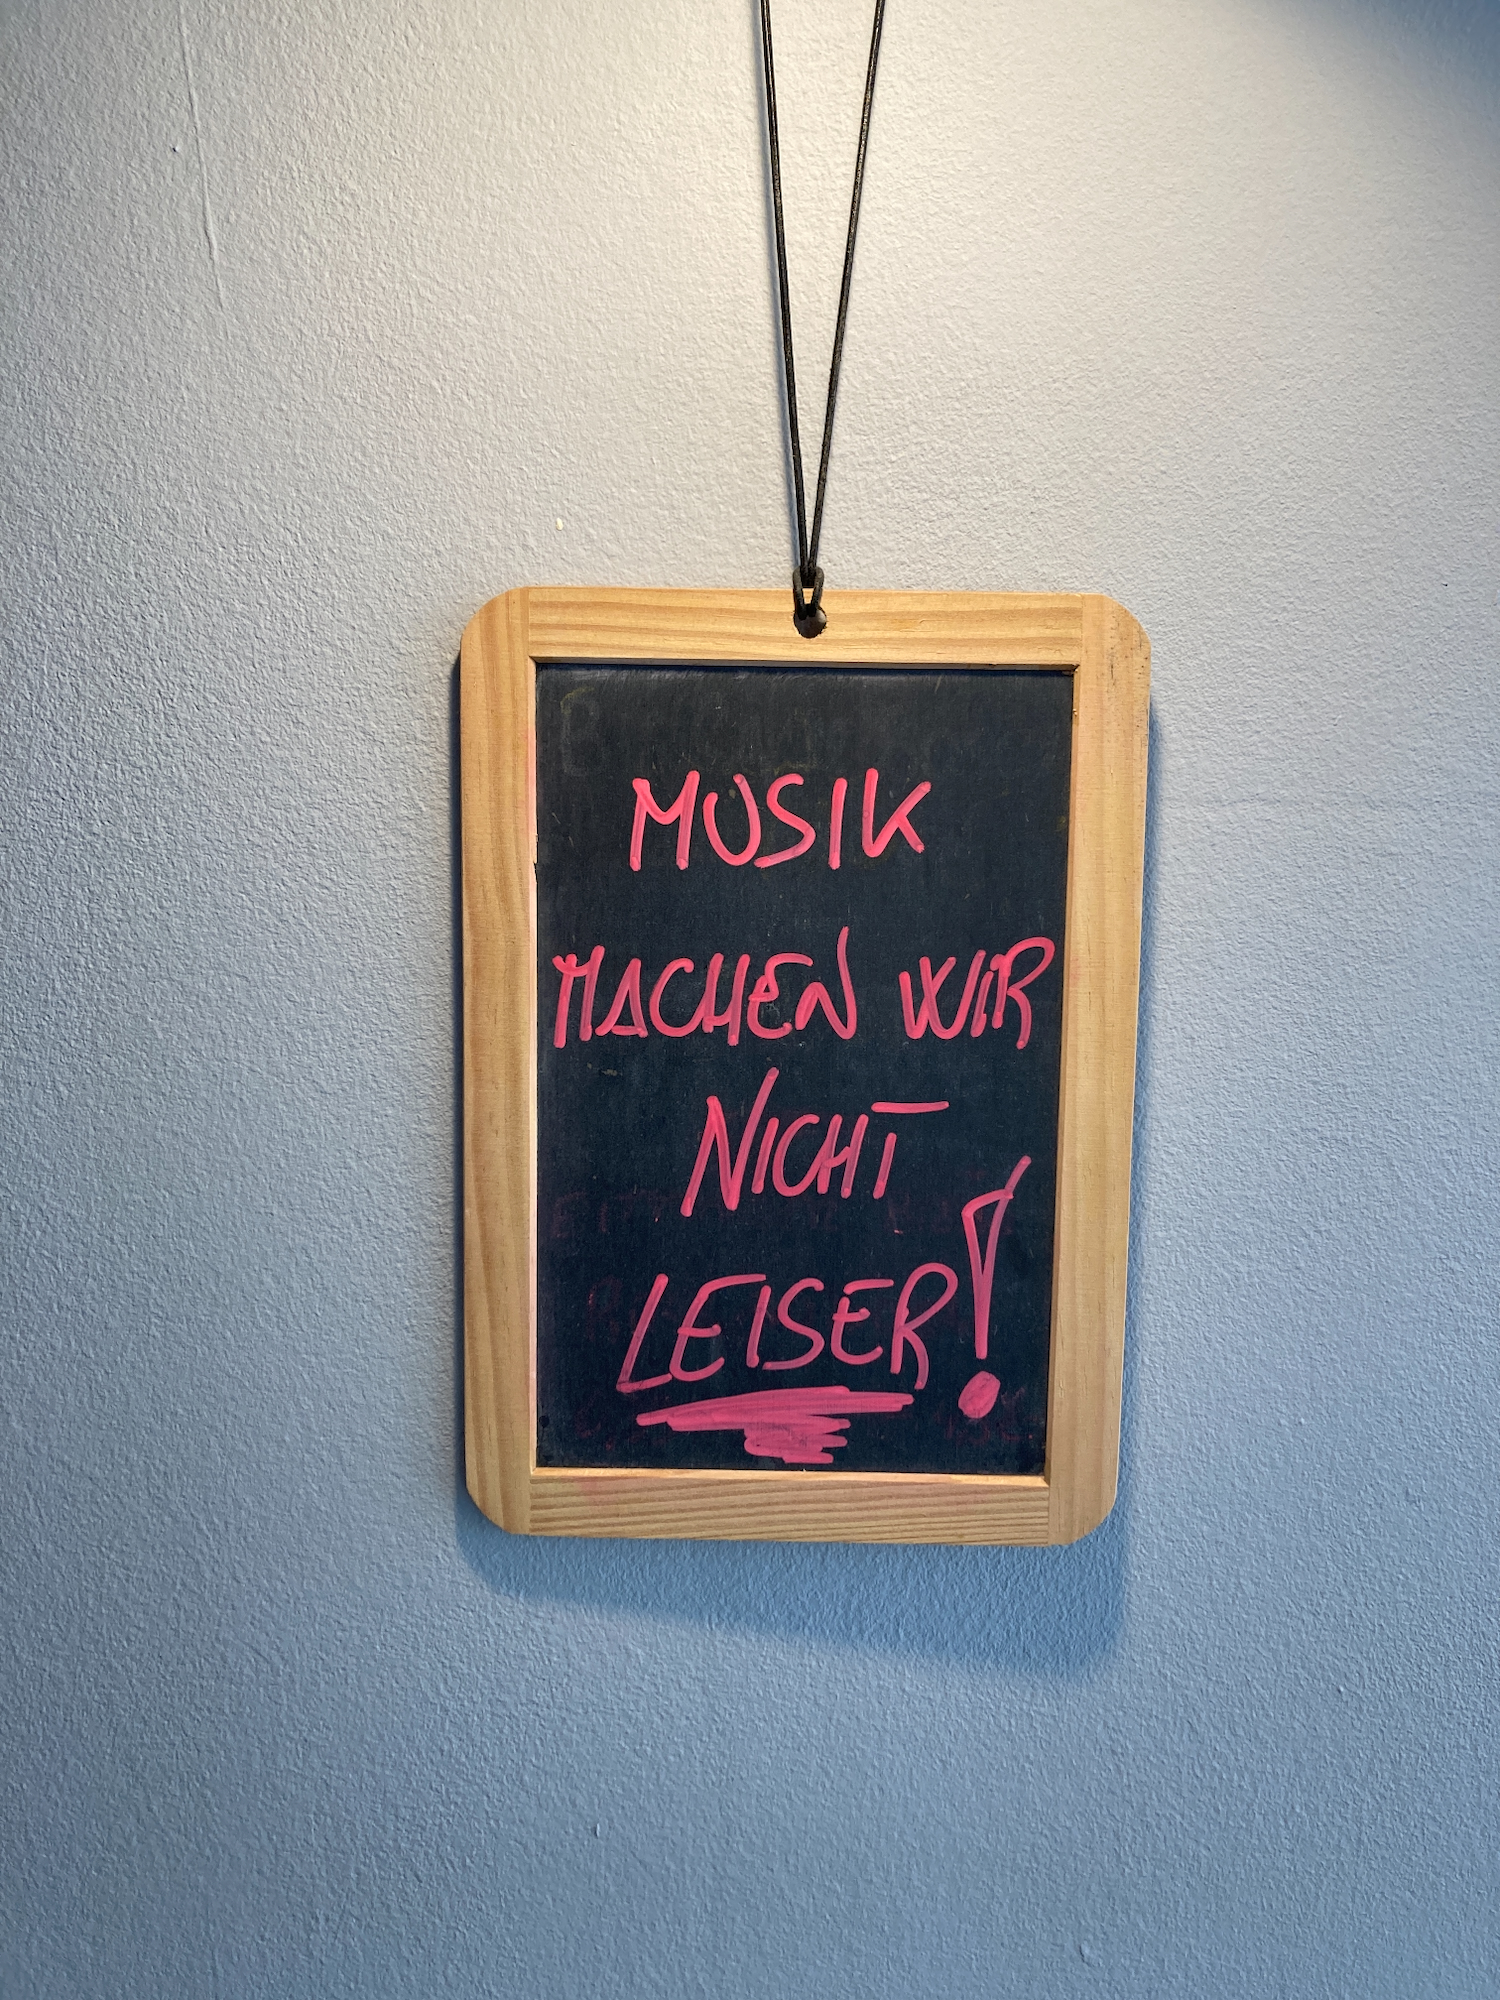 MUSIK
MACHEN WIR
NICHT
LEISER!